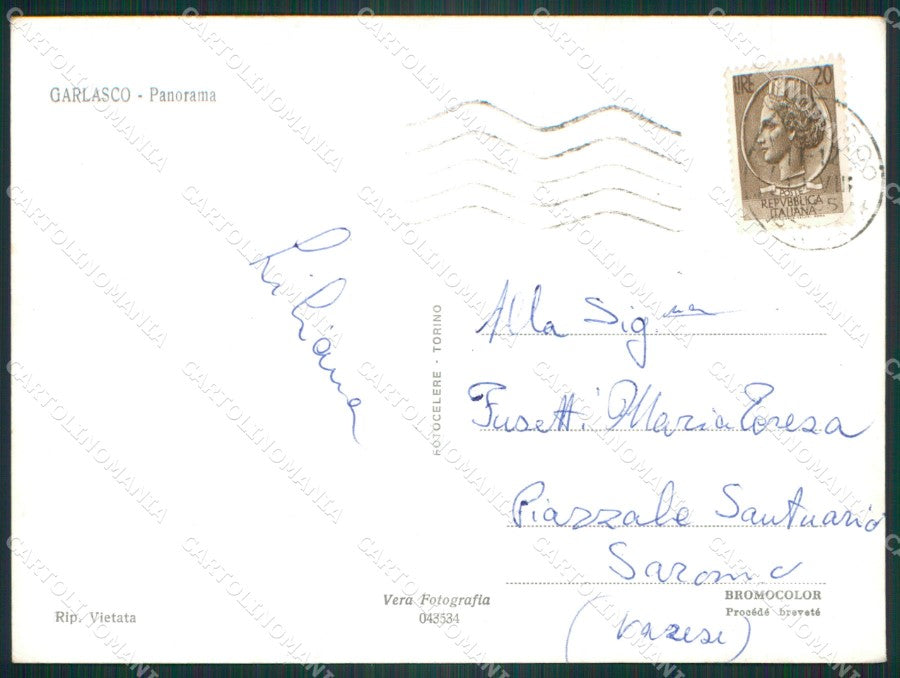 GARLASCO - Panorama
LIRE 20
POSTE
REPVBBLICA
ITALIANA
Liliana
FOTOCELERE - TORINO
Alla Sig na
Fusetti Maria Teresa
Piazzale Santuario
Saronno
(Varese)
BROMOCOLOR
Procédé breveté
Vera Fotografia
043534
Rip. Vietata
CARTOLINOMANIA